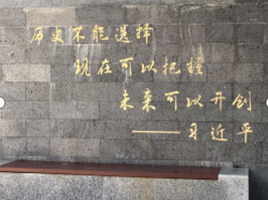 历史不能选择
现在可以把握
未来可以开创
——习近平